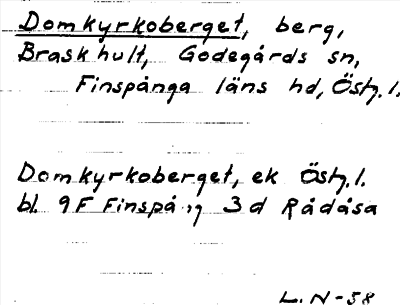 Domkyrkoberget, berg,
Braskhult, Godegårds sn,
Finspånga läns hd, Östg. l.
Domkyrkoberget, ek Östg. l.
bl. 9F Finspång 3d Rådåsa
L. N-58